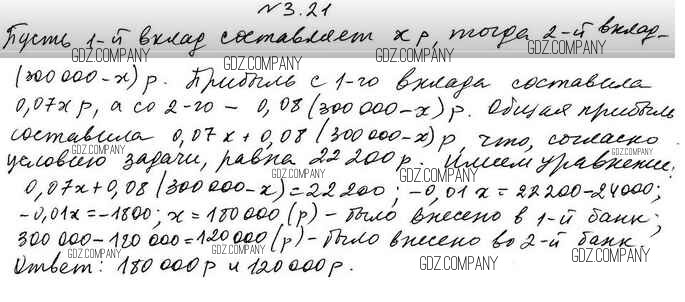 №3.21
Пусть 1-й вклад составляет x р, тогда 2-й вклад-
(300 000-x) р. Прибыль с 1-го вклада составила
0,07x р, а со 2-го - 0,08(300 000-x) р. Общая прибыль
составила 0,07x+0,08(300 000-x) р, что, согласно
условию задачи, равна 22 200 р. Имеем уравнение:
0,07x+0,08(300 000-x)=22 200; -0,01x=22200-24000;
-0,01x=-1800; x=180 000 (р) - было внесено в 1-й банк;
300 000-180 000=120 000 (р) - было внесено во 2-й банк.
Ответ: 180 000 р и 120 000 р.
GDZ.COMPANY
GDZ.COMPANY
GDZ.COMPANY
GDZ.COMPANY
GDZ.COMPANY
GDZ.COMPANY
GDZ.COMPANY
GDZ.COMPANY
GDZ.COMPANY
GDZ.COMPANY
GDZ.COMPANY
GDZ.COMPANY